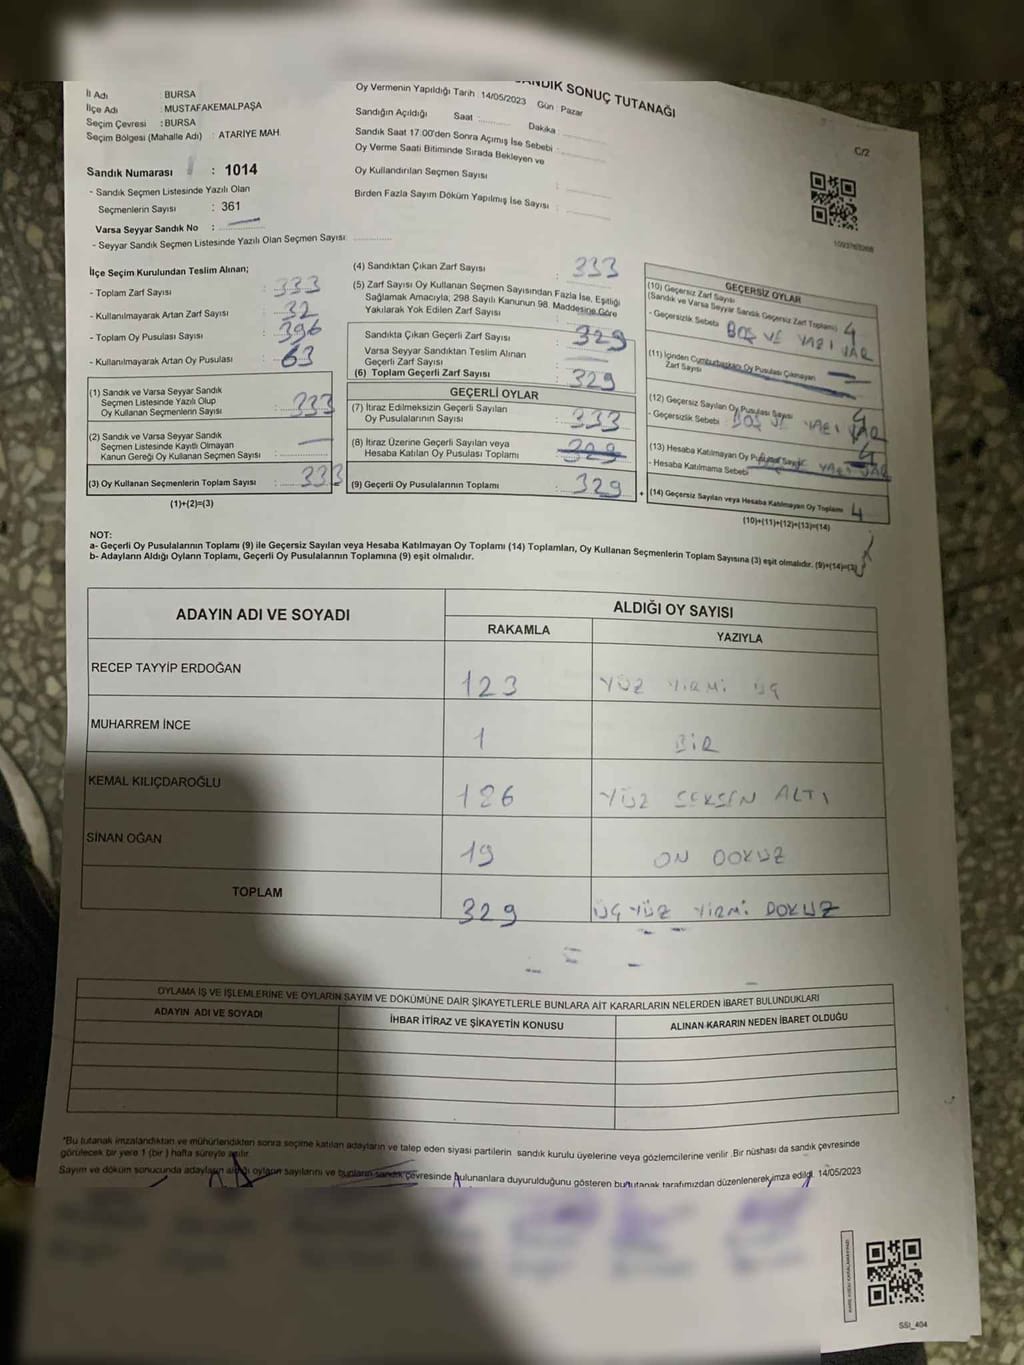 SANDIK SONUÇ TUTANAĞI
İl Adı BURSA
İlçe Adı : MUSTAFAKEMALPAŞA
Seçim Çevresi : BURSA
Seçim Bölgesi (Mahalle Adı) : ATARİYE MAH.
Sandık Numarası : 1014
- Sandık Seçmen Listesinde Yazılı Olan
Seçmenlerin Sayısı : 361
Varsa Seyyar Sandık No :
- Seyyar Sandık Seçmen Listesinde Yazılı Olan Seçmen Sayısı:
Oy Vermenin Yapıldığı Tarih : 14/05/2023 Gün : Pazar
Sandığın Açıldığı Saat : Dakika :
Sandık Saat 17:00'den Sonra Açımış İse Sebebi :
Oy Verme Saati Bitiminde Sırada Bekleyen ve
Oy Kullandırılan Seçmen Sayısı :
Birden Fazla Sayım Döküm Yapılmış İse Sayısı :
C/2
İlçe Seçim Kurulundan Teslim Alınan;
- Toplam Zarf Sayısı : 333
- Kullanılmayarak Artan Zarf Sayısı : 32
- Toplam Oy Pusulası Sayısı : 396
- Kullanılmayarak Artan Oy Pusulası : 63
(1) Sandık ve Varsa Seyyar Sandık
Seçmen Listesinde Yazılı Olup
Oy Kullanan Seçmenlerin Sayısı : 333
(2) Sandık ve Varsa Seyyar Sandık
Seçmen Listesinde Kayıtlı Olmayan
Kanun Gereği Oy Kullanan Seçmen Sayısı :
(3) Oy Kullanan Seçmenlerin Toplam Sayısı : 333
(1)+(2)=(3)
(4) Sandıktan Çıkan Zarf Sayısı : 333
(5) Zarf Sayısı Oy Kullanan Seçmen Sayısından Fazla İse, Eşitliği
Sağlamak Amacıyla; 298 Sayılı Kanunun 98. Maddesine Göre
Yakılarak Yok Edilen Zarf Sayısı :
Sandıkta Çıkan Geçerli Zarf Sayısı : 329
Varsa Seyyar Sandıktan Teslim Alınan
Geçerli Zarf Sayısı :
(6) Toplam Geçerli Zarf Sayısı : 329
GEÇERLİ OYLAR
(7) İtiraz Edilmeksizin Geçerli Sayılan
Oy Pusulalarının Sayısı : 333
(8) İtiraz Üzerine Geçerli Sayılan veya
Hesaba Katılan Oy Pusulası Toplamı : 329
(9) Geçerli Oy Pusulalarının Toplamı : 329
+
GEÇERSİZ OYLAR
(10) Geçersiz Zarf Sayısı
(Sandık ve Varsa Seyyar Sandık Geçersiz Zarf Toplamı) 4
- Geçersizlik Sebebi : BOŞ VE YAZI VAR
(11) İçinden Cumhurbaşkanı Oy Pusulası Çıkmayan
Zarf Sayısı
(12) Geçersiz Sayılan Oy Pusulası Sayısı 4
- Geçersizlik Sebebi : BOŞ VE YAZI VAR
(13) Hesaba Katılmayan Oy Pusulası Sayısı 4
- Hesaba Katılmama Sebebi YAZI VAR
(14) Geçersiz Sayılan veya Hesaba Katılmayan Oy Toplamı 4
(10)+(11)+(12)+(13)=(14)
NOT:
a- Geçerli Oy Pusulalarının Toplamı (9) ile Geçersiz Sayılan veya Hesaba Katılmayan Oy Toplamı (14) Toplamları, Oy Kullanan Seçmenlerin Toplam Sayısına (3) eşit olmalıdır. (9)+(14)=(3)
b- Adayların Aldığı Oyların Toplamı, Geçerli Oy Pusulalarının Toplamına (9) eşit olmalıdır.
ADAYIN ADI VE SOYADI
ALDIĞI OY SAYISI
RAKAMLA YAZIYLA
RECEP TAYYİP ERDOĞAN 123 YÜZ YİRMİ ÜÇ
MUHARREM İNCE 1 BİR
KEMAL KILIÇDAROĞLU 186 YÜZ SEKSEN ALTI
SİNAN OĞAN 19 ON DOKUZ
TOPLAM 329 ÜÇ YÜZ YİRMİ DOKUZ
OYLAMA İŞ VE İŞLEMLERİNE VE OYLARIN SAYIM VE DÖKÜMÜNE DAİR ŞİKAYETLERLE BUNLARA AİT KARARLARIN NELERDEN İBARET BULUNDUKLARI
ADAYIN ADI VE SOYADI İHBAR İTİRAZ VE ŞİKAYETİN KONUSU ALINAN KARARIN NEDEN İBARET OLDUĞU
*Bu tutanak imzalandıktan ve mühürlendikten sonra seçime katılan adayların ve talep eden siyasi partilerin sandık kurulu üyelerine veya gözlemcilerine verilir .Bir nüshası da sandık çevresinde
görülecek bir yere 1 (bir ) hafta süreyle asılır.
Sayım ve döküm sonucunda adayların aldığı oyların sayılarını ve bunların sandık çevresinde bulunanlara duyurulduğunu gösteren bu tutanak tarafımızdan düzenlenerek imza edildi. 14/05/2023
SSI_404